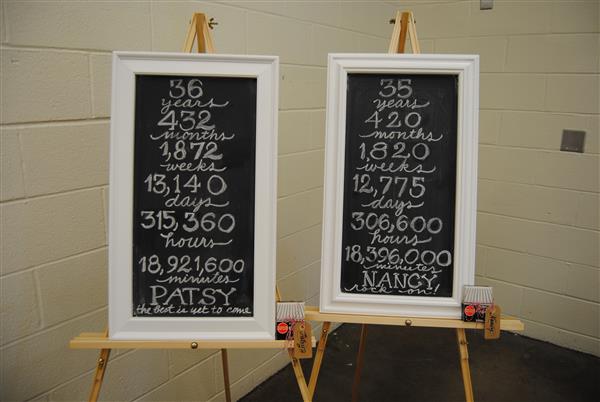 36
years
432
months
1,872
weeks
13,140
days
315,360
hours
18,921,600
minutes
PATSY
the best is yet to come
35
years
420
months
1,820
weeks
12,775
days
306,600
hours
18,396,000
minutes
NANCY
rock on!